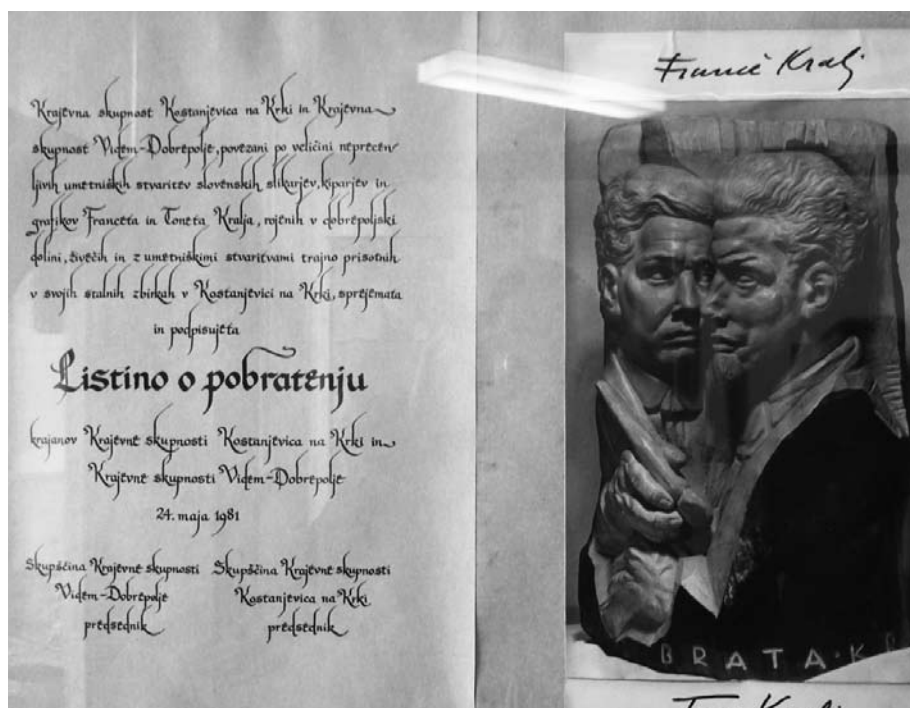 Krajevna skupnost Kostanjevica na Krki in Krajevna
skupnost Videm-Dobrepolje, povezani po veličini neprecen-
ljivih umetniških stvaritev slovenskih slikarjev, kiparjev in
grafikov Franceta in Toneta Kralja, rojenih v dobrepoljski
dolini, živečih in z umetniškimi stvaritvami trajno prisotnih
v svojih stalnih zbirkah v Kostanjevici na Krki, sprejemata
in podpisujeta
Listino o pobratenju
krajanov Krajevne skupnosti Kostanjevica na Krki in
Krajevne skupnosti Videm-Dobrepolje
24. maja 1981
Skupščina Krajevne skupnosti
Videm-Dobrepolje
predsednik
Skupščina Krajevne skupnosti
Kostanjevica na Krki
predsednik
Francè Kralj
BRATA·K